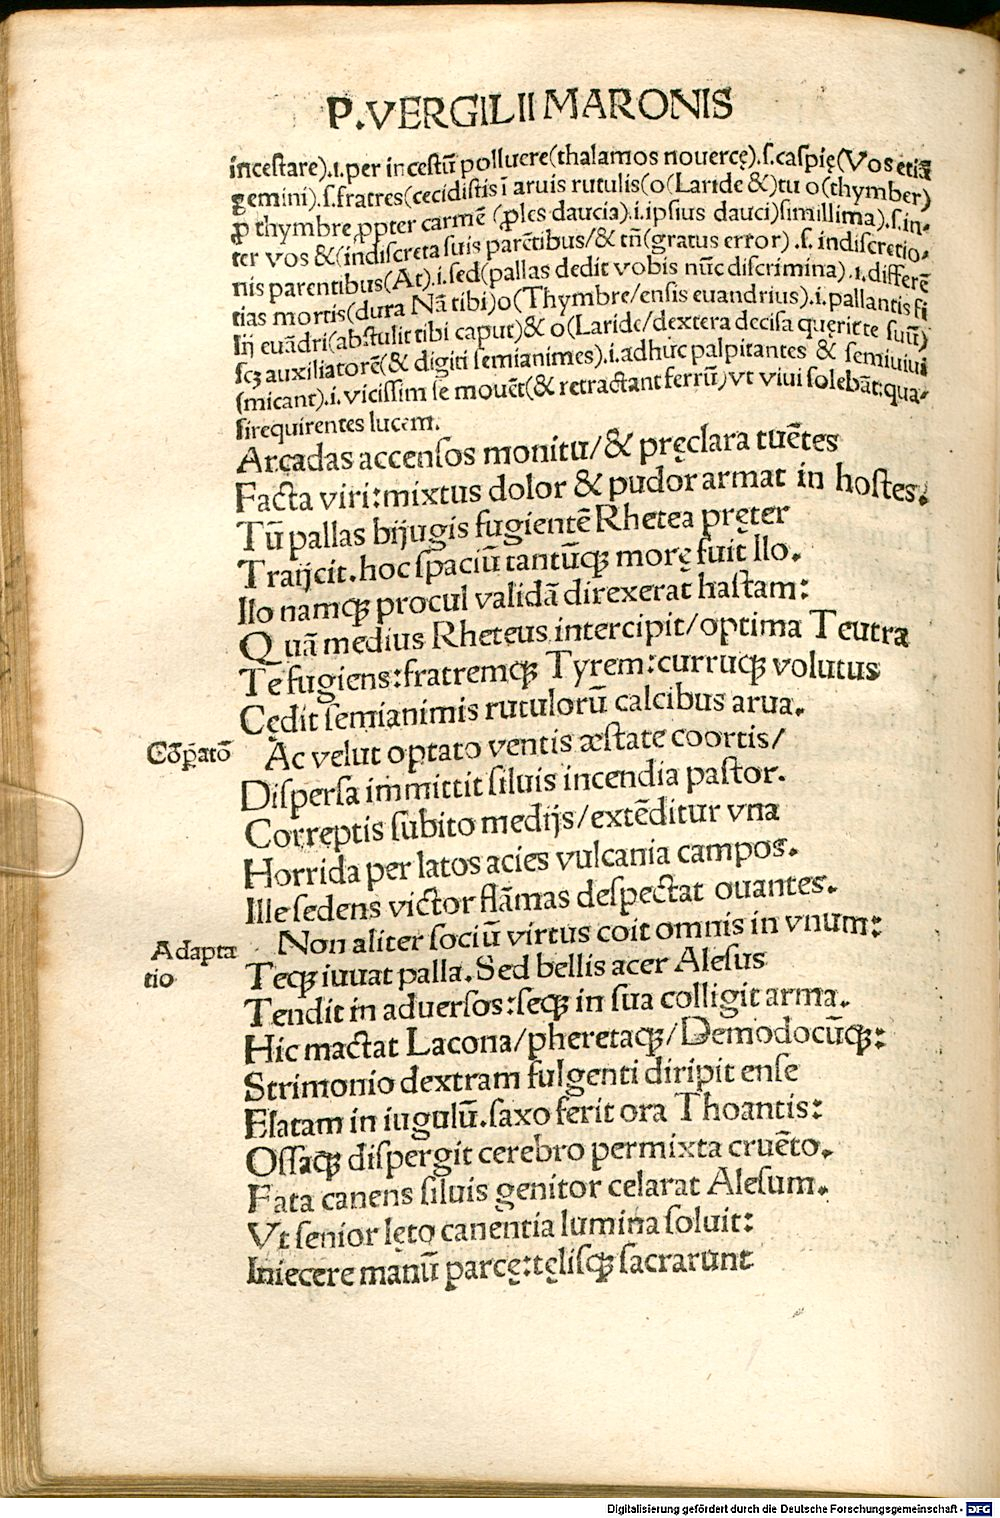 P. VERGILII MARONIS
incestare).i.per incestū polluere(thalamos nouercę).ſ.caſpię(Vos etiā
gemini).ſ.fratres(cecidiſtis ī aruis rutulis(o(Laride &)tu o(thymber)
ꝓ thymbre ꝓpter carmē (ꝓles daucia).i.ipsius dauci)simillima).ſ.in-
ter vos &(indiſcreta suis parētibus/& tñ(gratus error) .ſ. indiſcretio-
nis parentibus(At).i.sed(pallas dedit vobis nūc diſcrimina).i.differē
tias mortis(dura Nā tibi)o(Thymbre/enſis euandrius).i.pallantis fi
lij euādri(abſtulit tibi caput)& o(Laride/dextera deciſa quęrit te ſuū)
ſcꝫ auxiliatorē(& digiti ſemianimes).i.adhuc palpitantes & ſemiuiui
(micant).i.viciſſim ſe mouēt(& retractant ferrū)vt viui ſolebāt:qua-
ſi requirentes lucem.
Arcadas accenſos monitu/& pręclara tuētes
Facta viri:mixtus dolor & pudor armat in hoſtes.
Tū pallas bijugis fugientē Rhetea pręter
Traijcit.hoc ſpaciū tantūqꝫ morę fuit Ilo.
Ilo namqꝫ procul validā direxerat haſtam:
Quā medius Rheteus intercipit/optima Teutra
Te fugiens:fratremqꝫ Tyrem:curruqꝫ volutus
Cędit ſemianimis rutulorū calcibus arua.
Cōꝑatō
Ac velut optato ventis æſtate coortis/
Diſperſa immittit ſiluis incendia paſtor.
Correptis ſubito medijs/extēditur vna
Horrida per latos acies vulcania campos.
Ille ſedens victor flāmas deſpectat ouantes.
Adapta
tio
Non aliter ſociū virtus coit omnis in vnum:
Teqꝫ iuuat palla. Sed bellis acer Aleſus
Tendit in aduerſos:ſeqꝫ in ſua colligit arma.
Hic mactat Lacona/pheretaqꝫ/Demodocūqꝫ:
Strimonio dextram fulgenti diripit enſe
Elatam in iugulū.ſaxo ferit ora Thoantis:
Oſſaqꝫ diſpergit cerebro permixta cruēto.
Fata canens ſiluis genitor celarat Aleſum.
Vt ſenior lęto canentia lumina ſoluit:
Iniecere manū parcę:tęliſqꝫ ſacrarunt
Digitalisierung gefördert durch die Deutsche Forschungsgemeinschaft - DFG